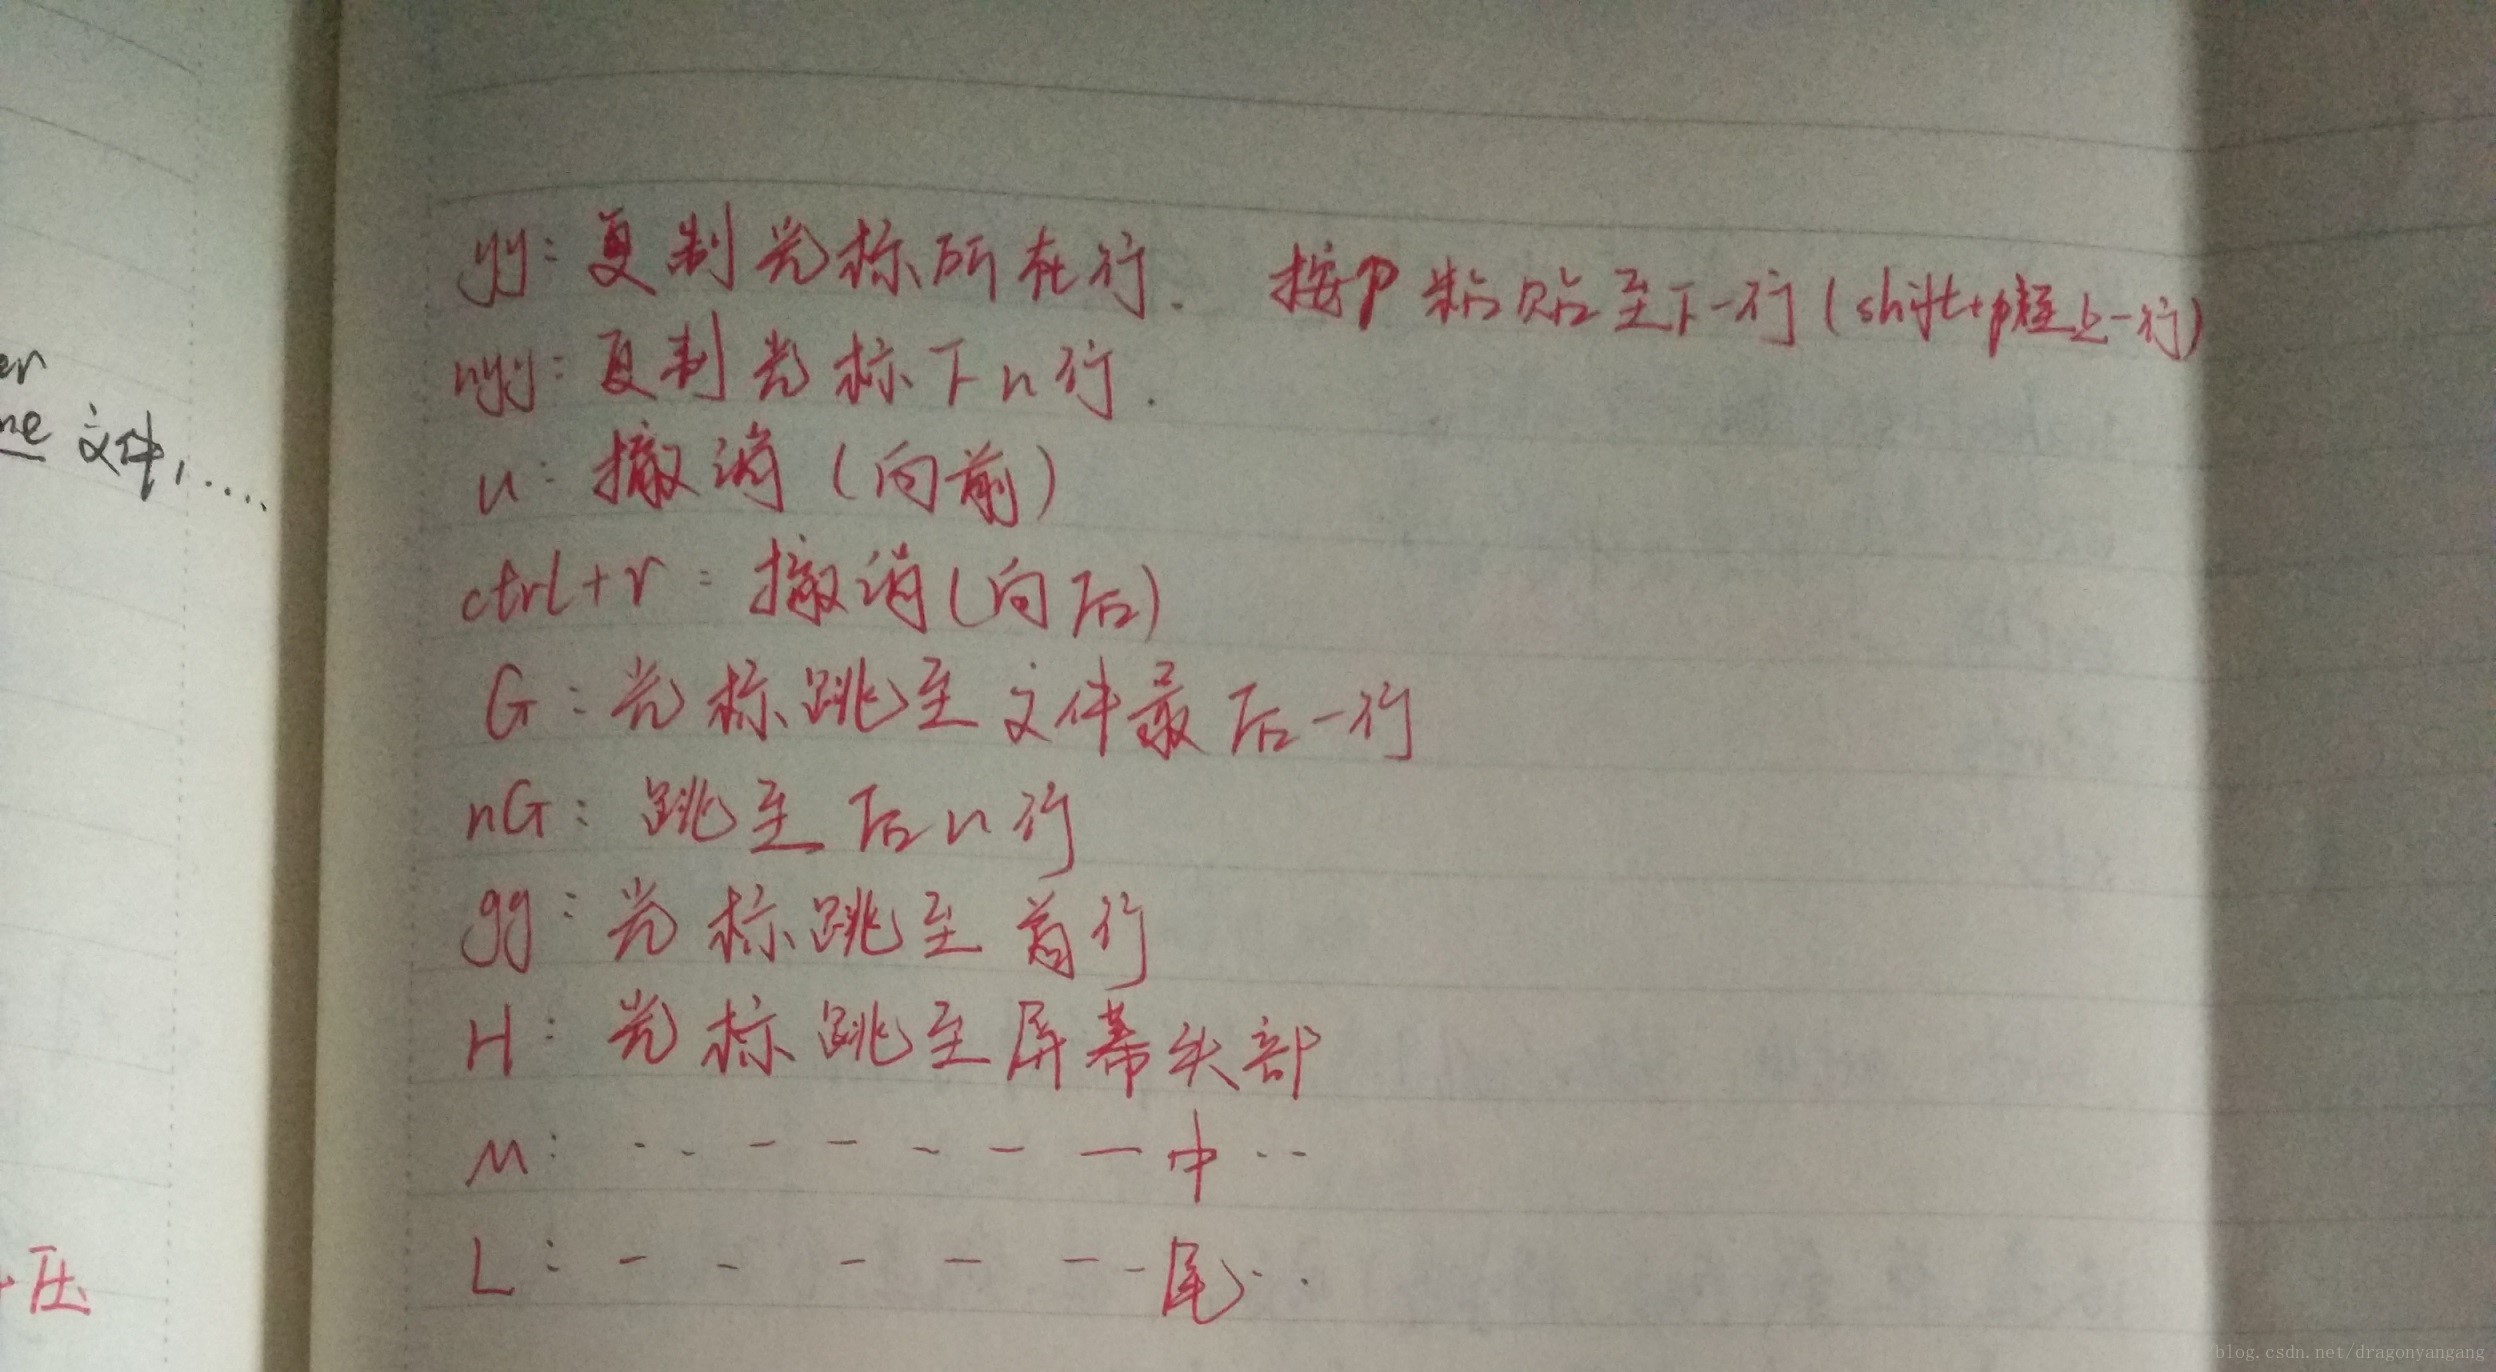 er
me 文件,....
压
yy: 复制光标所在行. 按p 粘贴至下一行 (shift+p粘至上一行)
nyy: 复制光标下n行.
u: 撤消 (向前)
ctrl+r: 撤消 (向后)
G: 光标跳至文件最后一行
nG: 跳至后n行
gg: 光标跳至首行
H: 光标跳至屏幕头部
M: - - - - - - - 中 - -
L: - - - - - - 尾 - -
blog.csdn.net/dragonyangang